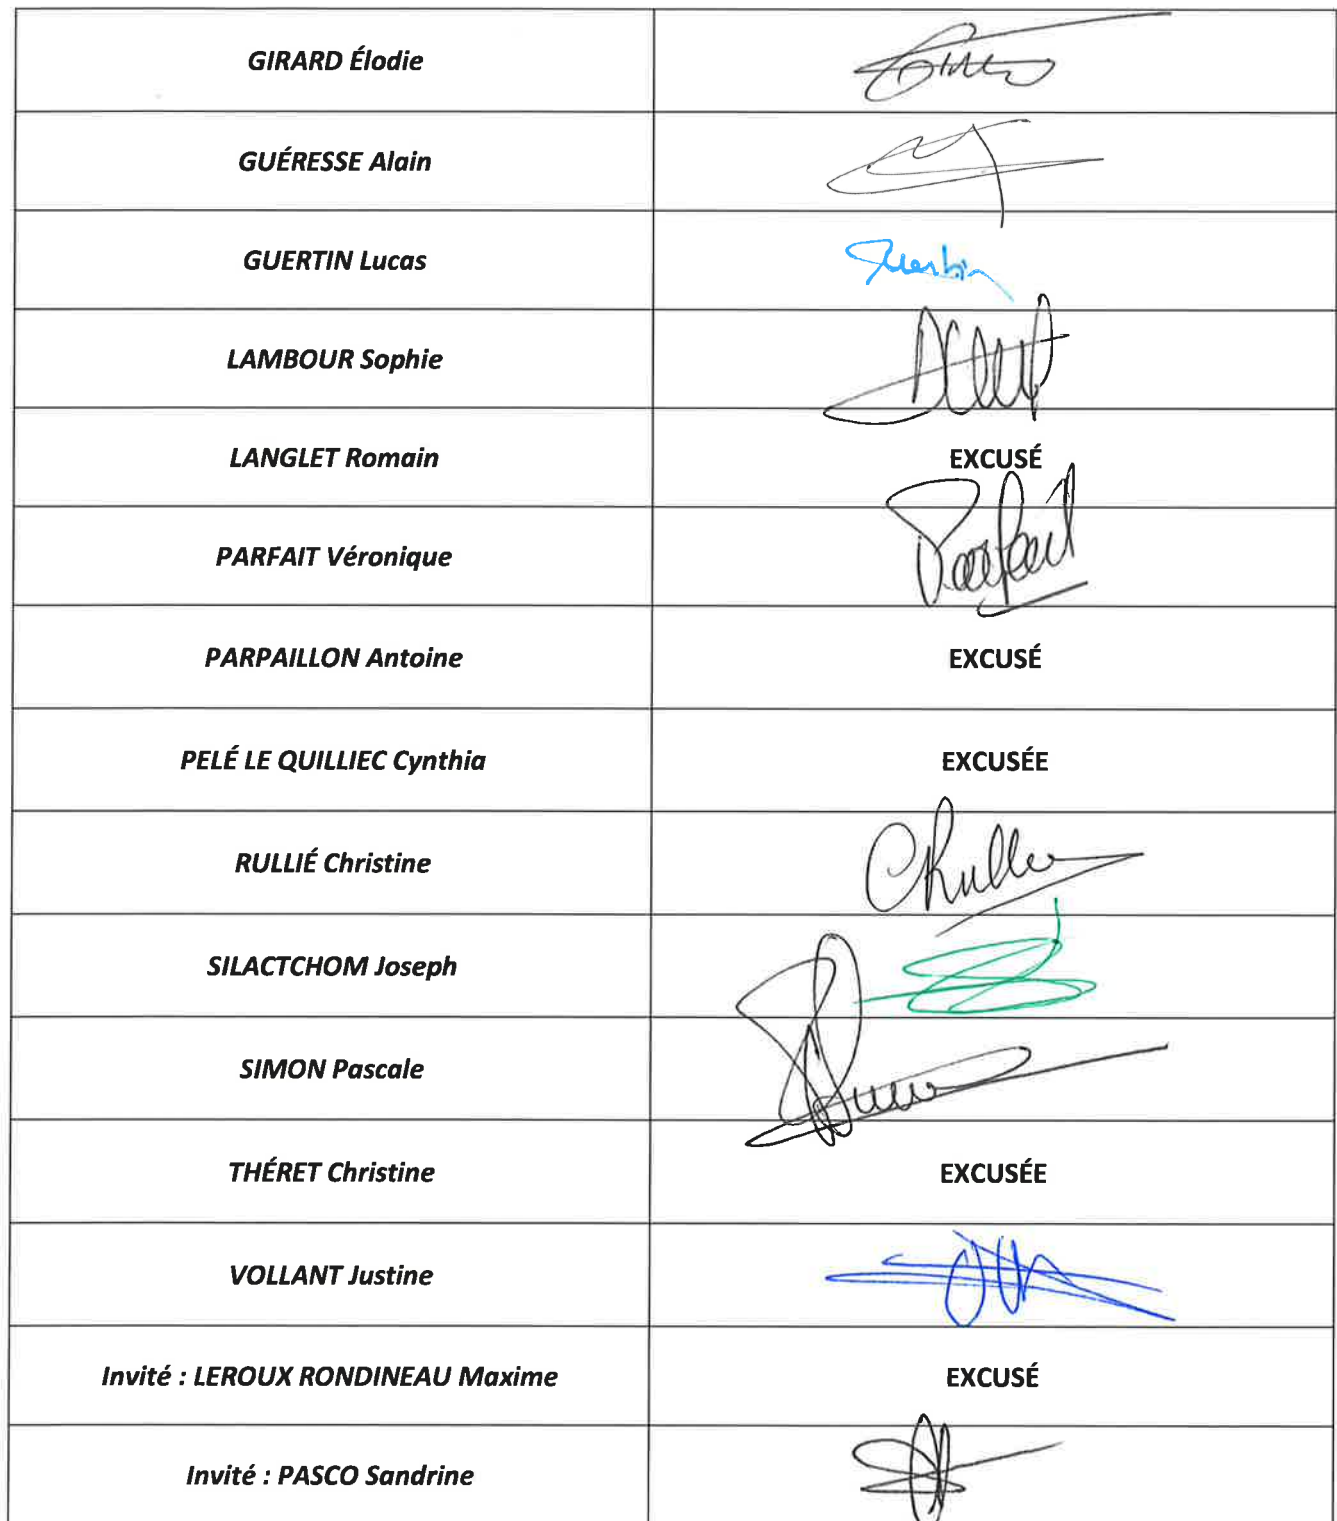 GIRARD Élodie
GUÉRESSE Alain
GUERTIN Lucas Guertin
LAMBOUR Sophie
LANGLET Romain EXCUSÉ
PARFAIT Véronique Parfait
PARPAILLON Antoine EXCUSÉ
PELÉ LE QUILLIEC Cynthia EXCUSÉE
RULLIÉ Christine
SILACTCHOM Joseph
SIMON Pascale
THÉRET Christine EXCUSÉE
VOLLANT Justine
Invité : LEROUX RONDINEAU Maxime EXCUSÉ
Invité : PASCO Sandrine